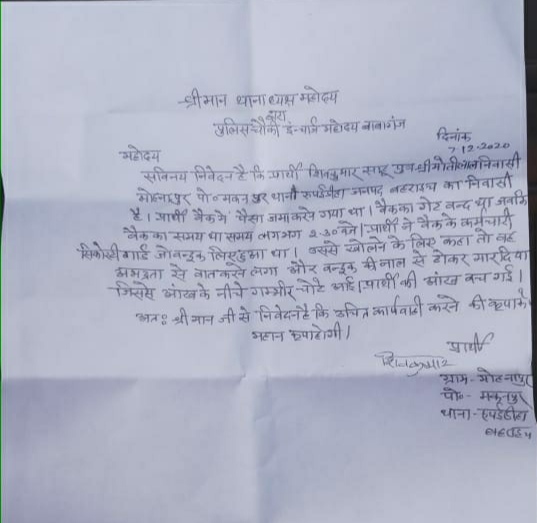 श्रीमान थानाध्यक्ष महोदय
द्वारा
पुलिस चौकी इंचार्ज महोदय बाबागंज
दिनांक
7-12-2020
महोदय
सविनय निवेदन है कि प्रार्थी शिवकुमार साहू पुत्र श्री मोतीलाल निवासी
मोहनापुर पो० मकनपुर थाना रुपईडीहा जनपद बहराइच का निवासी
है। प्रार्थी बैंक मे पैसा जमा करने गया था। बैंक का गेट बन्द था जबकि
बैंक का समय था समय लगभग 2-30 बजे। प्रार्थी ने बैंक के कर्मचारी
सिकोरटी गार्ड जो बन्दुक लिए हुआ था। उससे खोलने के लिए कहा तो वह
अभद्रता से बात करने लगा और बन्दुक की नाल से ठोकर मार दिया
जिससे आंख के नीचे गम्भीर चोटे आई। प्रार्थी की आंख बच गई।
अतः श्रीमान जी से निवेदन है कि उचित कार्यवाही करने की कृपा करे
महान कृपा होगी।
प्रार्थी
शिवकुमार
ग्राम- मोहनापुर
पो०- मकनपुर
थाना- रुपईडीहा
बहराइच